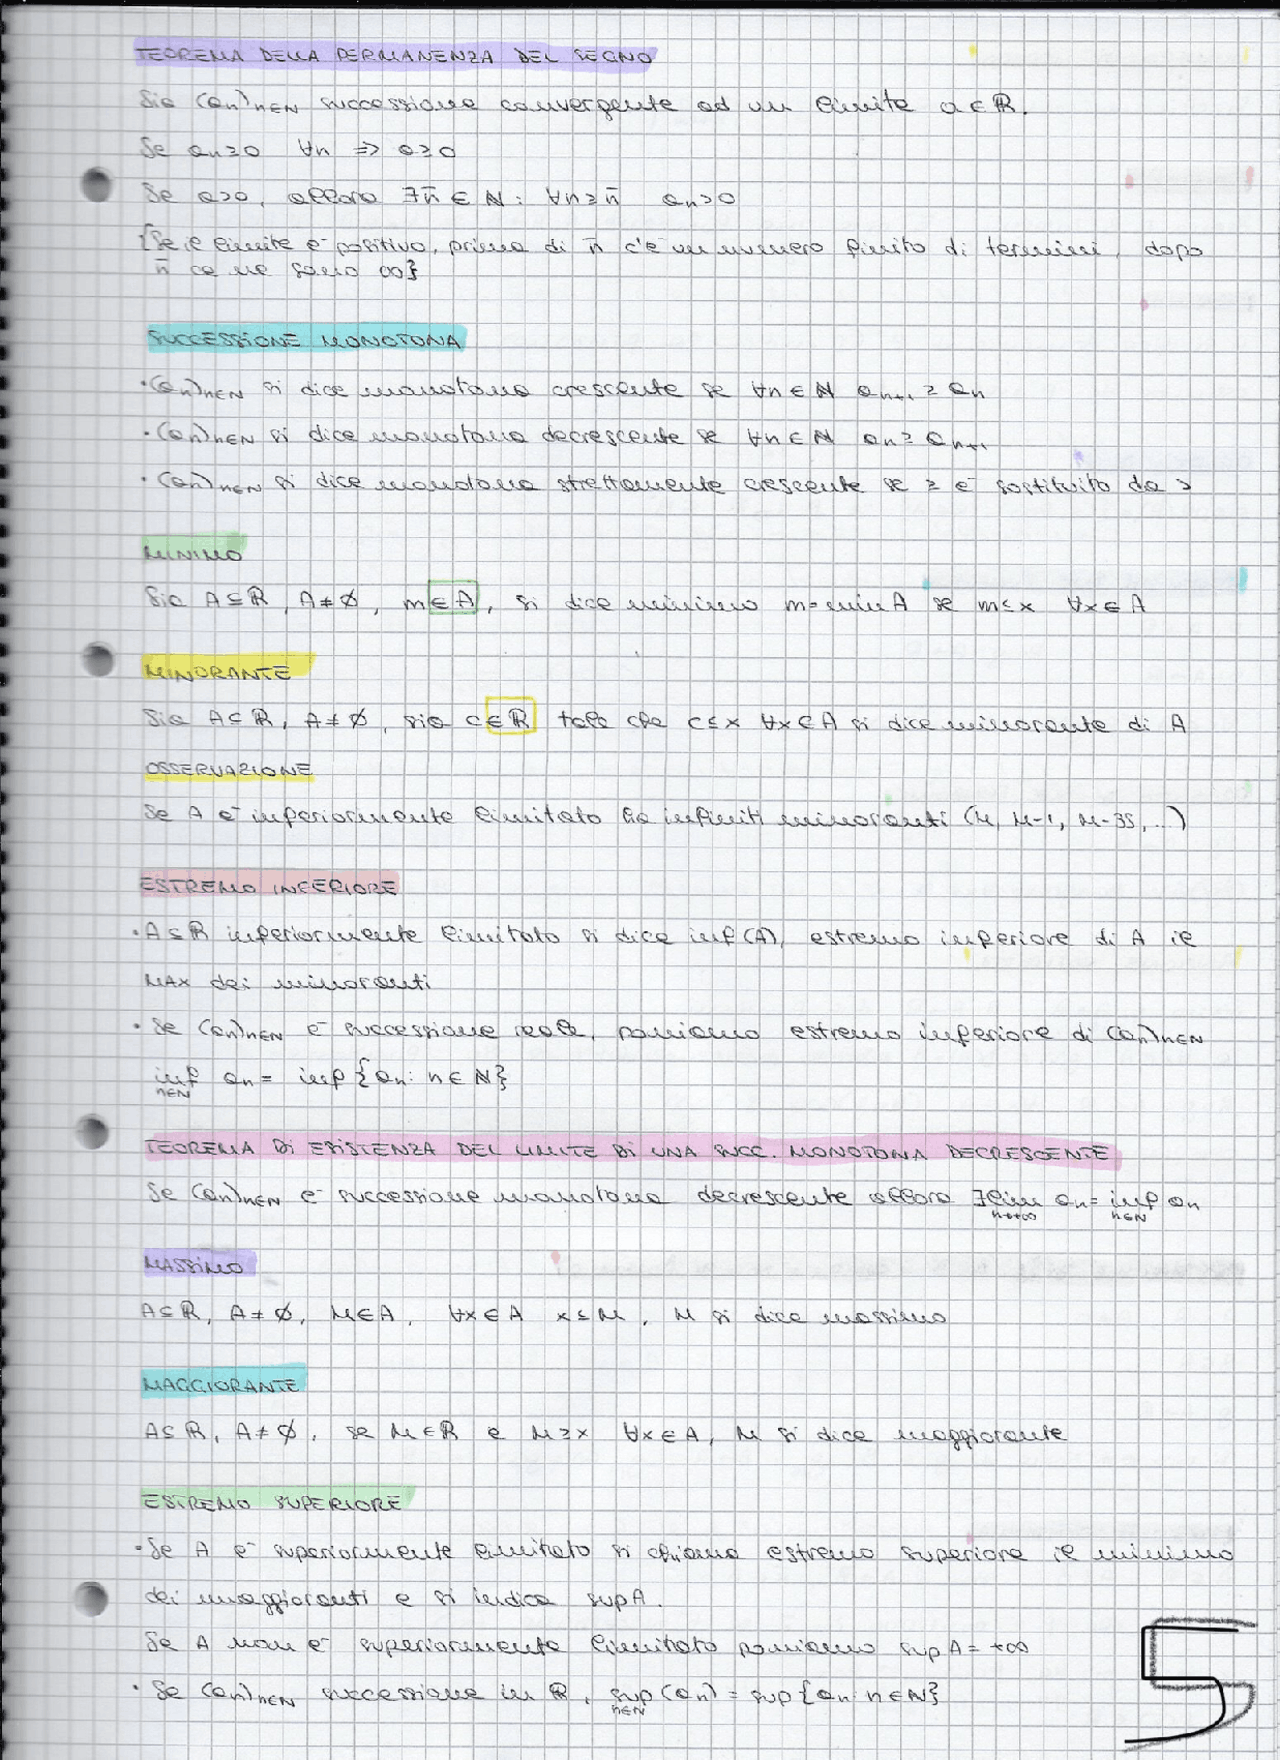 TEOREMA DELLA PERMANENZA DEL SEGNO
Sia (an)n∈N successione convergente ad un limite a∈ℝ.
Se an≥0 ∀n ⇒ a≥0
Se a>0, allora ∃n̄ ∈ N: ∀n≥n̄ an>0
{Se il limite è positivo, prima di n̄ c'è un numero finito di termini, dopo
n̄ ce ne sono ∞}
SUCCESSIONE MONOTONA
• (an)n∈N si dice monotona crescente se ∀n∈N an+1 ≥ an
• (an)n∈N si dice monotona decrescente se ∀n∈N an ≥ an+1
• (an)n∈N si dice monotona strettamente crescente se ≥ è sostituito da >
MINIMO
Sia A⊆ℝ, A≠∅, m∈A, si dice minimo m=minA se m≤x ∀x∈A
MINORANTE
Sia A⊆ℝ, A≠∅, sia c∈ℝ tale che c≤x ∀x∈A si dice minorante di A
OSSERVAZIONE
Se A è inferiormente limitato ha infiniti minoranti (M, M-1, M-35, ...)
ESTREMO INFERIORE
• A⊆ℝ inferiormente limitato si dice inf(A), estremo inferiore di A il
MAX dei minoranti
• Se (an)n∈N è successione reale, poniamo estremo inferiore di (an)n∈N
inf an = inf {an: n∈N}
n∈N
TEOREMA DI ESISTENZA DEL LIMITE DI UNA SUCC. MONOTONA DECRESCENTE
Se (an)n∈N è successione monotona decrescente allora ∃lim an = inf an
n→+∞ n∈N
MASSIMO
A⊆ℝ, A≠∅, M∈A, ∀x∈A x≤M, M si dice massimo
MAGGIORANTE
A⊆ℝ, A≠∅, se M∈ℝ e M≥x ∀x∈A, M si dice maggiorante
ESTREMO SUPERIORE
• Se A è superiormente limitato si chiama estremo superiore il minimo
dei maggioranti e si indica supA.
Se A non è superiormente limitato poniamo supA = +∞
• Se (an)n∈N successione in ℝ, sup(an) = sup{an: n∈N}
n∈N
5